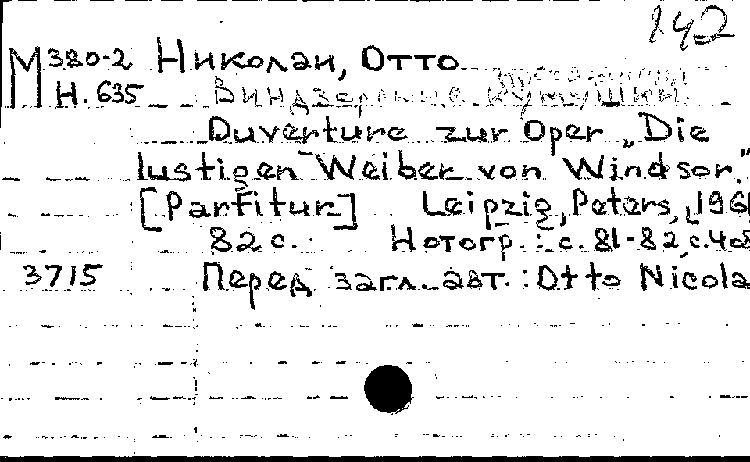 142
М380-2 Николаи, Отто
Н. 635 Виндзорские кумушки
Ouverture zur Oper „Die
lustigen Weiber von Windsor."
[Partitur] Leipzig, Peters, 196
82 с. Нотогр.: с. 81-82, с.
3715 Перед загл. авт.: Otto Nicola